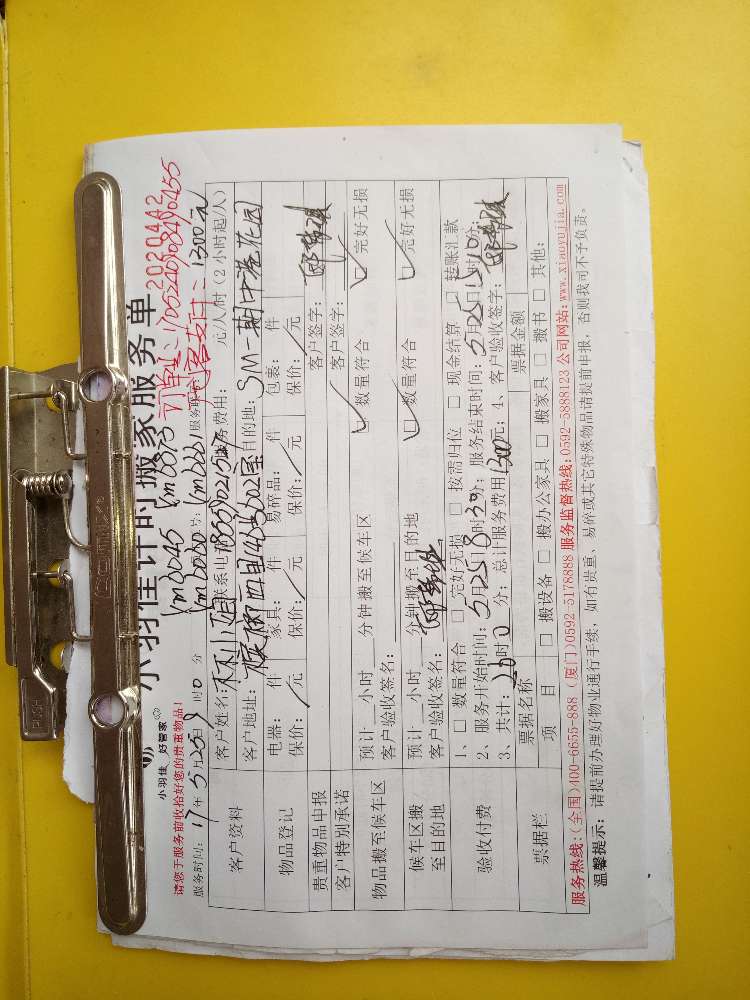 小羽佳计时搬家服务单 2020442
小羽佳 好管家
请您于服务前收拾好您的贵重物品!
订单号: 1705240108490455
客支付: 1300元
xm0045 xm0073
xm0060 xm0661
服务时间: 17年5月25日9时0分
客户资料
客户姓名: 林小姐 联系电 服务费用: 元/人付(2小时起/人)
客户地址: 目的地: SM一期中港花园
物品登记
电器: 件 家具: 件 易碎品: 件 包裹: 件
保价: / 元 保价: / 元 保价: / 元 保价: / 元
贵重物品申报 客户签字:
客户特别承诺 客户签字:
物品搬至候车区
预计__小时__分钟搬至候车区 数量符合 完好无损
客户验收签名:
候车区搬至目的地
预计__小时__分钟搬至目的地 数量符合 完好无损
客户验收签名:
验收付费
1、□ 数量符合 □ 完好无损 □ 按需归位 □ 现金结算 □ 转账汇款
2、服务开始时间: 5月25日8时30分; 服务结束时间: 5月25日
3、共计: 时0分; 总计服务费用1300元; 4、客户验收签字:
票据栏
票据名称 票据金额
项目 □ 搬设备 □ 搬办公家具 □ 搬家具 □ 搬书 □ 其他:
服务热线:(全国)400-6655-888 (厦门)0592-5178888 服务监督热线:0592-5888123 公司网站:www.xiaoyujia.com
温馨提示: 请提前办理好物业通行手续, 如有贵重、易碎或其它特殊物品请提前申报, 否则我司不予负责。